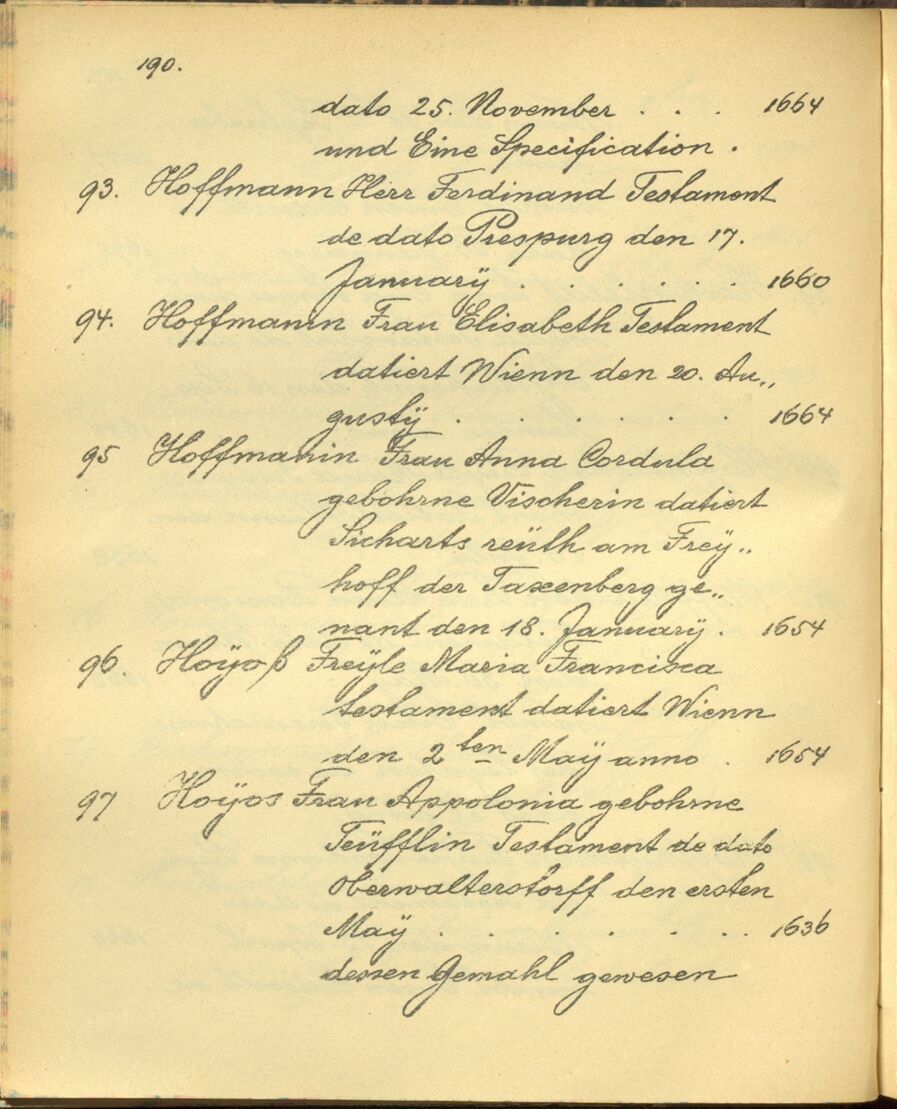 190.
dato 25. November . . . 1664
und Eine Specification .
93. Hoffmann Herr Ferdinand Testament
de dato Prespurg den 17.
Januarÿ . . . . . . 1660
94. Hoffmanin Frau Elisabeth Testament
datiert Wienn den 20. Au„
gustÿ . . . . . . 1664
95 Hoffmanin Frau Anna Cordula
gebohrne Vischerin datiert
Sicharts reüth am Freÿ„
hoff der Taxenberg ge„
nant den 18. Januarÿ . 1654
96. Hoÿoß Freÿle Maria Francisca
testament datiert Wienn
den 2ten Maÿ anno . 1654
97 Hoÿos Frau Appolonia gebohrne
Teüfflin Testament de dato
Oberwalterstorff den ersten
Maÿ . . . . . . 1636
dessen Gemahl gewesen